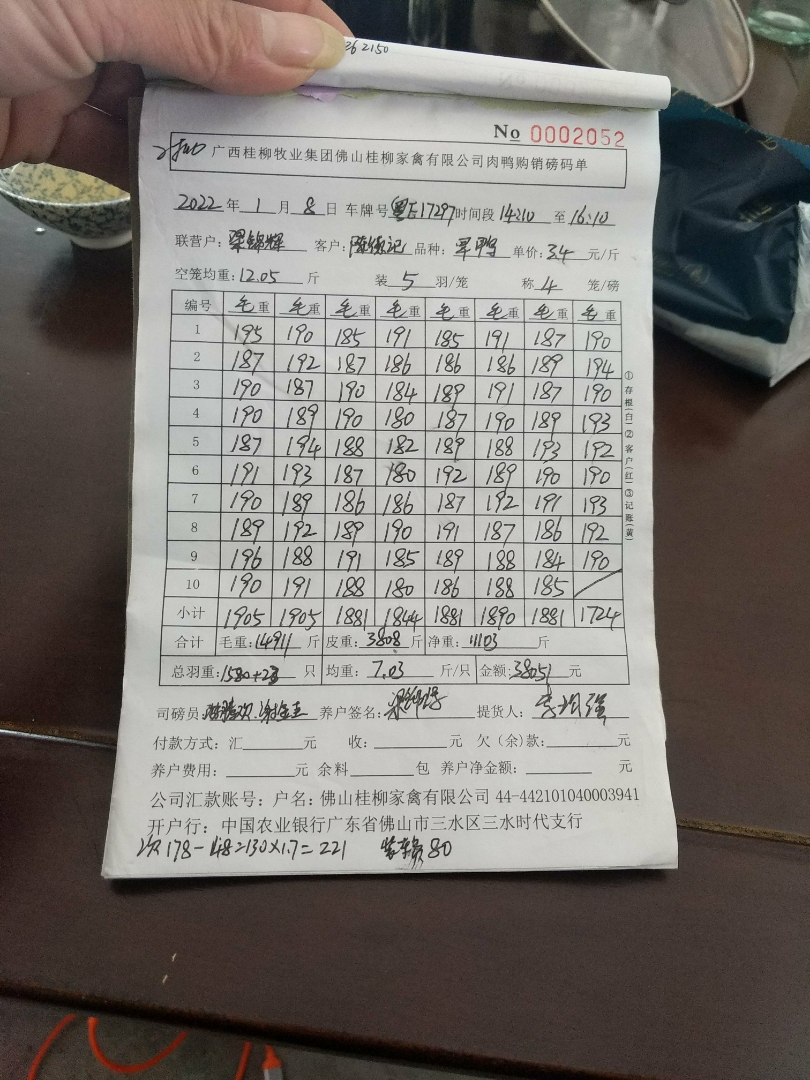 362150
No 0002052
广西桂柳牧业集团佛山桂柳家禽有限公司肉鸭购销磅码单
2022年1月8日 车牌号粤E17297时间段14:10至16:10
联营户:梁锦辉 客户:陈 记 品种:旱鸭 单价:3.4元/斤
空笼均重:12.05斤 装5羽/笼 称4笼/磅
编号 毛重 毛重 毛重 毛重 毛重 毛重 毛重 毛重
1 195 190 185 191 185 191 187 190
2 187 192 187 186 186 186 189 194
3 190 187 190 184 189 191 187 190
4 190 189 190 180 187 190 189 193
5 187 194 188 182 189 188 193 192
6 191 193 187 180 192 189 190 190
7 190 189 186 186 187 192 191 193
8 189 192 189 190 191 187 186 192
9 196 188 191 185 189 188 184 190
10 190 191 188 180 186 188 185
小计 1905 1905 1881 1844 1881 1890 1881 1724
合计 毛重:14911斤 皮重:3808斤 净重:11103斤
总羽重:1580+ 只 均重:7.03斤/只 金额:38051元
司磅员: 养户签名: 提货人:李 强
付款方式:汇 元 收: 元 欠(余)款: 元
养户费用: 元 余料 包 养户净金额: 元
公司汇款账号:户名:佛山桂柳家禽有限公司 44-442101040003941
开户行:中国农业银行广东省佛山市三水区三水时代支行
178-48=130×1.7=221 80
①存根(白)②客户(红)③记账(黄)